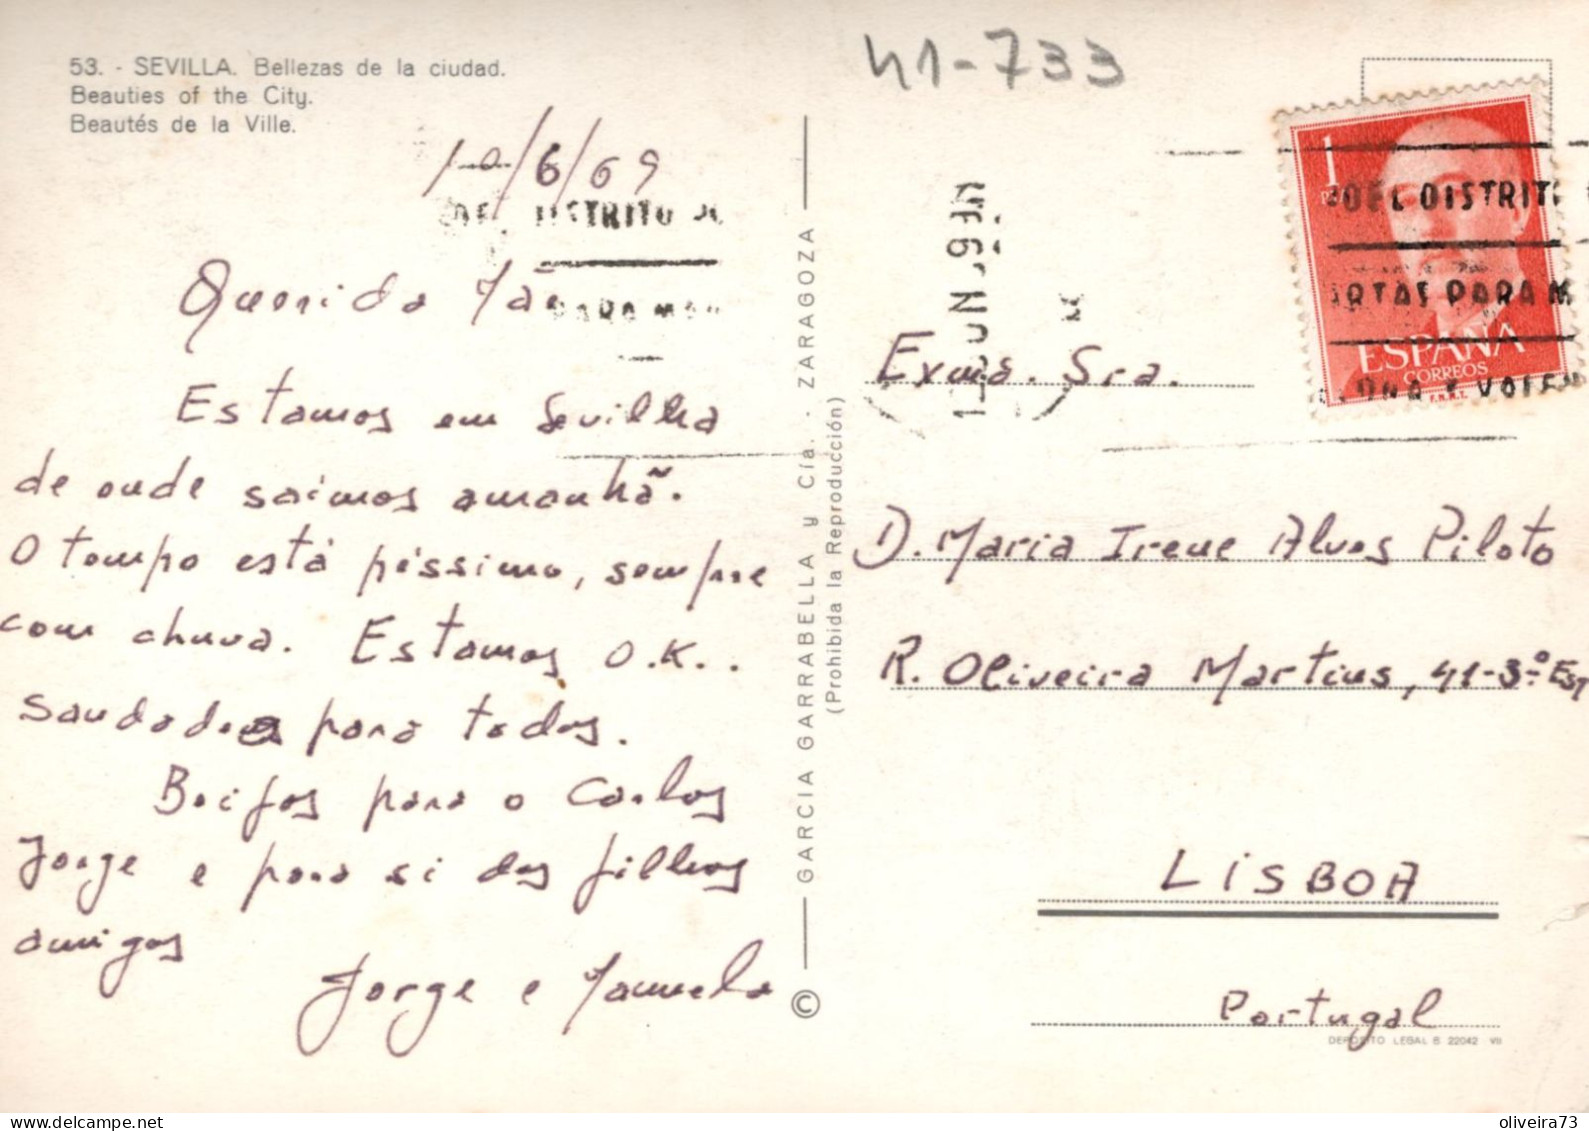 53. - SEVILLA. Bellezas de la ciudad.
Beauties of the City.
Beautés de la Ville.
41-733
10/6/69
DISTRITO
PARA
Querida Mãe
Estamos em Sevilha
de onde saímos amanhã.
O tempo está péssimo, sempre
com chuva. Estamos O.K..
Saudades para todos.
Beijos para o Carlos
Jorge e para si dos filhos
amigos
Jorge e Manuela
GARCIA GARRABELLA y Cía. - ZARAGOZA
(Prohibida la Reproducción)
©
1
DEL DISTRIT
PARA
ESPAÑA
CORREOS
F.N.M.T.
JUN
Exma. Sra.
D. Maria Irene Alves Piloto
R. Oliveira Martins, 41-3º Esq
LISBOA
Portugal
DEPOSITO LEGAL B 22042 VII
oliveira73